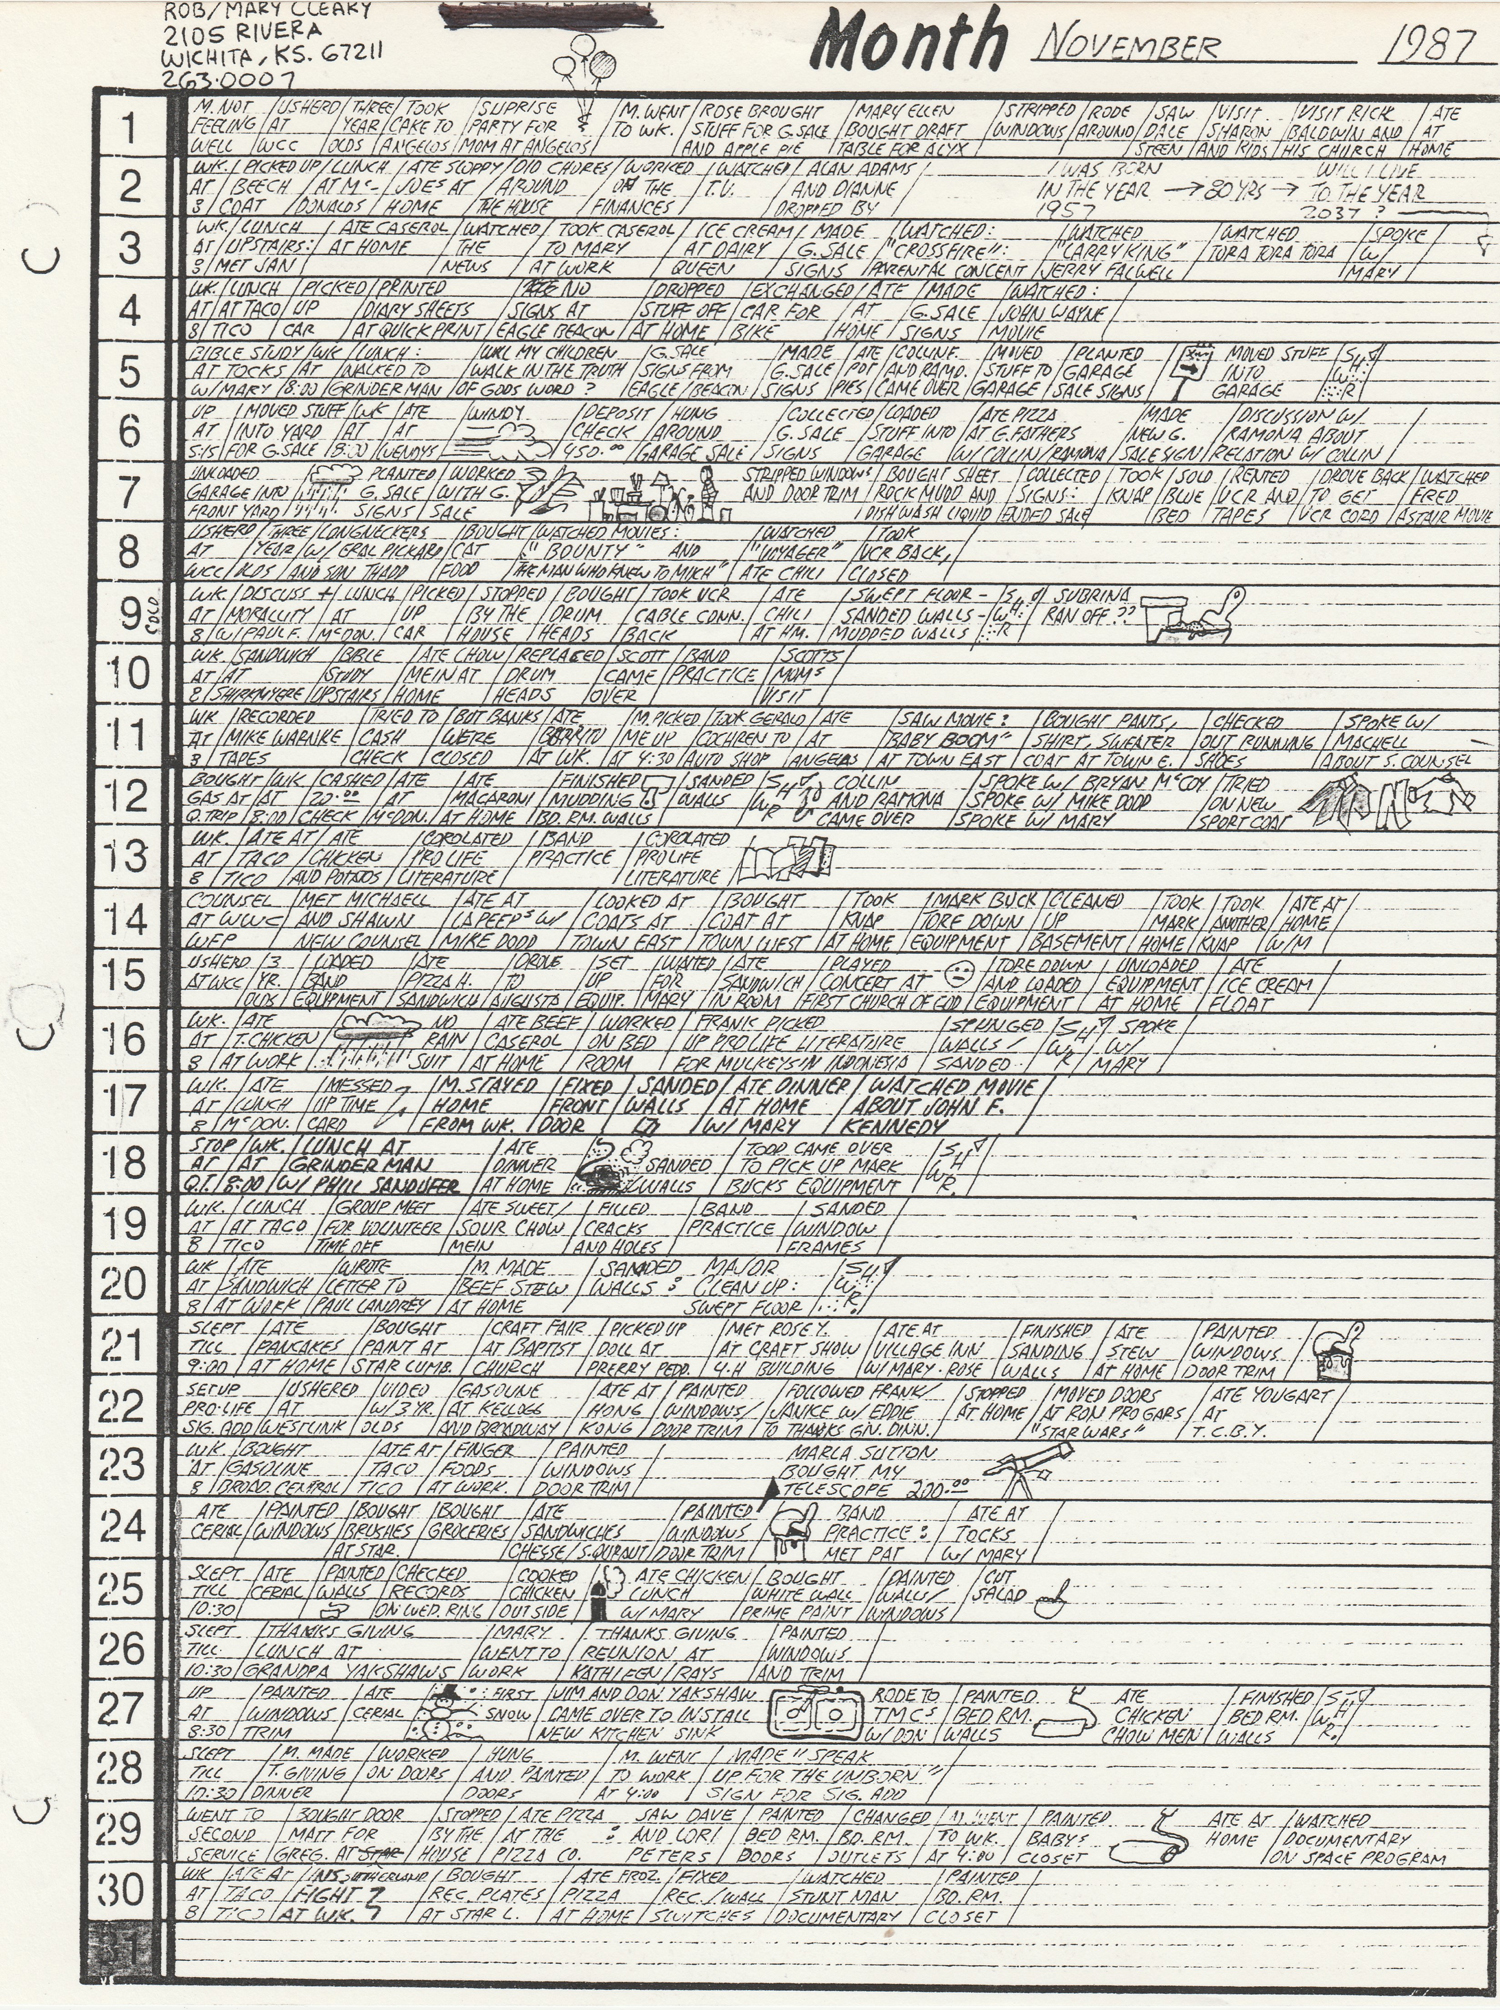 ROB/MARY CLEARY
2105 RIVERA
WICHITA, KS. 67211
263-0007
Month NOVEMBER 1987
1
M. NOT / USHERD / THREE / TOOK / SUPRISE / M. WENT / ROSE BROUGHT / MARY ELLEN / STRIPPED / RODE / SAW / VISIT / VISIT RICK / ATE
FEELING / AT / YEAR / CAKE TO / PARTY FOR / TO WK. / STUFF FOR G. SALE / BOUGHT DRAFT / WINDOWS / AROUND / DALE / SHARON / BALDWIN AND / AT
WELL / WCC / OLDS / ANGELOS / MOM AT ANGELOS / AND APPLE PIE / TABLE FOR ALYX / STEEN / AND KIDS / HIS CHURCH / HOME
2
WK. / PICKED UP / LUNCH / ATE SLOPPY / DID CHORES / WORKED / WATCHED / ALAN ADAMS / I WAS BORN WILL I LIVE
AT / BEECH / AT Mc- / JOES AT / AROUND / ON THE / T.V. / AND DIANNE / IN THE YEAR → 80 YRS → TO THE YEAR
8 / COAT / DONALDS / HOME / THE HOUSE / FINANCES / DROPPED BY / 1957 2037 ?
3
WK. / LUNCH / ATE CASEROL / WATCHED / TOOK CASEROL / ICE CREAM / MADE / WATCHED: / WATCHED / WATCHED / SPOKE
AT / UPSTAIRS: / AT HOME / THE / TO MARY / AT DAIRY / G. SALE / "CROSSFIRE": / "LARRY KING" / TORA TORA TORA / W/
8 / MET JAN / NEWS / AT WORK / QUEEN / SIGNS / PARENTAL CONCENT / JERRY FALWELL / MARY
4
WK. / LUNCH / PICKED / PRINTED / NO / DROPPED / EXCHANGED / ATE / MADE / WATCHED:
AT / AT TACO / UP / DIARY SHEETS / SIGNS AT / STUFF OFF / CAR FOR / AT / G. SALE / JOHN WAYNE
8 / TICO / CAR / AT QUICK PRINT / EAGLE BEACON / AT HOME / BIKE / HOME / SIGNS / MOVIE
5
BIBLE STUDY / WK / LUNCH: / WILL MY CHILDREN / G. SALE / MADE / ATE / COLLIN F. / MOVED / PLANTED / MOVED STUFF / SH
AT TOCKS / AT / WALKED TO / WALK IN THE TRUTH / SIGNS FROM / G. SALE / POT / AND RAMO. / STUFF TO / GARAGE / INTO / W
W/ MARY / 8:00 / GRINDER MAN / OF GODS WORD ? / EAGLE/BEACON / SIGNS / PIES / CAME OVER / GARAGE / SALE SIGNS / GARAGE / R
6
UP / MOVED STUFF / WK / ATE / WINDY / DEPOSIT / HUNG / COLLECTED / LOADED / ATE PIZZA / MADE / DISCUSSION W/
AT / INTO YARD / AT / AT / CHECK / AROUND / G. SALE / STUFF INTO / AT G. FATHERS / NEW G. / RAMONA ABOUT
5:15 / FOR G. SALE / 8:00 / WENDYS / 450.00 / GARAGE SALE / SIGNS / GARAGE / W/ COLLIN/RAMONA / SALE SIGN / RELATION W/ COLLIN
7
UNLOADED / PLANTED / WORKED / STRIPPED WINDOWS / BOUGHT SHEET / COLLECTED / TOOK / SOLD / RENTED / DROVE BACK / WATCHED
GARAGE INTO / G. SALE / WITH G. / AND DOOR TRIM / ROCK MUDD AND / SIGNS: / KNAP / BLUE / VCR AND / TO GET / FRED
FRONT YARD / SIGNS / SALE / DISH WASH LIQUID / ENDED SALE / BED / TAPES / VCR CORD / ASTAIR MOVIE
8
USHERD / THREE / LONGNECKERS / BOUGHT / WATCHED MOVIES: / WATCHED / TOOK
AT / YEAR / W/ ERAL PICKARD / CAT / "BOUNTY" AND / "VOYAGER" / VCR BACK,
WCC / OLDS / AND SON THADD / FOOD / THE MAN WHO KNEW TO MUCH" / ATE CHILI / CLOSED
9 COLD
WK. / DISCUSS + / LUNCH / PICKED / STOPPED / BOUGHT / TOOK VCR / ATE / SWEPT FLOOR - / SH / SUBRINA
AT / MORALLITY / AT / UP / BY THE / DRUM / CABLE CONN. / CHILI / SANDED WALLS - / W / RAN OFF ??
8 / W/ PAUL F. / McDON. / CAR / HOUSE / HEADS / BACK / AT HM. / MUDDED WALLS / R
10
WK. / SANDWICH / BIBLE / ATE CHOW / REPLACED / SCOTT / BAND / SCOTTS
AT / AT / STUDY / MEIN AT / DRUM / CAME / PRACTICE / MOMS
8 / UPSTAIRS / HOME / HEADS / OVER / VISIT
11
WK / RECORDED / TRIED TO / BUT BANKS / ATE / M. PICKED / TOOK GERALD / ATE / SAW MOVIE: / BOUGHT PANTS, / CHECKED / SPOKE W/
AT / MIKE WARNKE / CASH / WERE / BURRITO / ME UP / COCHREN TO / AT / "BABY BOOM" / SHIRT, SWEATER / OUT RUNNING / MACHELL
8 / TAPES / CHECK / CLOSED / AT WK. / AT 4:30 / AUTO SHOP / ANGELAS / AT TOWN EAST / COAT AT TOWN E. / SHOES / ABOUT S. COUNSEL
12
BOUGHT / WK / CASHED / ATE / ATE / FINISHED / SANDED / SH / COLLIN / SPOKE W/ BRYAN McCOY / TRIED
GAS AT / AT / 20.00 / AT / MACARONI / MUDDING / WALLS / W / AND RAMONA / SPOKE W/ MIKE DODD / ON NEW
Q. TRIP / 8:00 / CHECK / McDON. / AT HOME / BD. RM. WALLS / R / CAME OVER / SPOKE W/ MARY / SPORT COAT
13
WK. / ATE AT / ATE / COROLATED / BAND / COROLATED
AT / TACO / CHICKEN / PRO LIFE / PRACTICE / PRO LIFE
8 / TICO / AND POTATOS / LITERATURE / LITERATURE
14
COUNSEL / MET MICHAELL / ATE AT / LOOKED AT / BOUGHT / TOOK / MARK BUCK / CLEANED / TOOK / TOOK / ATE AT
AT WWC / AND SHAWN / LAPEEDS W/ / COATS AT / COAT AT / KNAP / TORE DOWN / UP / MARK / ANOTHER / HOME
WFP / NEW COUNSEL / MIKE DODD / TOWN EAST / TOWN WEST / AT HOME / EQUIPMENT / BASEMENT / HOME / KNAP / W/M
15
USHERD / 3 / LOADED / ATE / DROVE / SET / WAITED / ATE / PLAYED / TORE DOWN / UNLOADED / ATE
AT WCC / YR. / BAND / PIZZA H. / TO / UP / FOR / SANDWICH / CONCERT AT / AND LOADED / EQUIPMENT / ICE CREAM
OLDS / EQUIPMENT / SANDWICH / AUGUSTA / EQUIP. / MARY / IN ROOM / FIRST CHURCH OF GOD / EQUIPMENT / AT HOME / FLOAT
16
WK. / ATE / NO / ATE BEEF / WORKED / FRANK PICKED / SPUNGED / SH / SPOKE
AT / T. CHICKEN / RAIN / CASEROL / ON BED / UP PRO LIFE LITERATURE / WALLS / / W / W/
8 / AT WORK / SUIT / AT HOME / ROOM / FOR MULKEYS IN INDONESIA / SANDED / R / MARY
17
WK. / ATE / MESSED / M. STAYED / FIXED / SANDED / ATE DINNER / WATCHED MOVIE
AT / LUNCH / UP TIME / HOME / FRONT / WALLS / AT HOME / ABOUT JOHN F.
8 / McDON. / CARD / FROM WK. / DOOR / W/ MARY / KENNEDY
18
STOP / WK. / LUNCH AT / ATE / TODD CAME OVER / SH
AT / AT / GRINDER MAN / DINNER / SANDED / TO PICK UP MARK / W
Q.T. / 8:00 / W/ PHILL SANDUFER / AT HOME / WALLS / BUCKS EQUIPMENT / R.
19
WK. / LUNCH / GROUP MEET / ATE SWEET/ / FILLED / BAND / SANDED
AT / AT TACO / FOR VOLUNTEER / SOUR CHOW / CRACKS / PRACTICE / WINDOW
8 / TICO / TIME OFF / MEIN / AND HOLES / FRAMES
20
WK / ATE / WROTE / M. MADE / SANDED / MAJOR / SH
AT / SANDWICH / LETTER TO / BEEF STEW / WALLS : / CLEAN UP: / W
8 / AT WORK / PAUL LANDREY / AT HOME / SWEPT FLOOR / R.
21
SLEPT / ATE / BOUGHT / CRAFT FAIR / PICKED UP / MET ROSE Y. / ATE AT / FINISHED / ATE / PAINTED
TILL / PANCAKES / PAINT AT / AT BAPTIST / DOLL AT / AT CRAFT SHOW / VILLAGE INN / SANDING / STEW / WINDOWS
9:00 / AT HOME / STAR LUMB. / CHURCH / PRERRY PEDD. / 4-H BUILDING / W/ MARY-ROSE / WALLS / AT HOME / DOOR TRIM
22
SETUP / USHERED / VIDEO / GASOLINE / ATE AT / PAINTED / FOLLOWED FRANK/ / STOPPED / MOVED DOORS / ATE YOUGART
PRO-LIFE / AT / W/ 3 YR. / AT KELLOGG / HONG / WINDOWS/ / JANICE W/ EDDIE / AT HOME / AT RON PRO GARS / AT
SIG. ADD / WESTLINK / OLDS / AND BROADWAY / KONG / DOOR TRIM / TO THANKS GIV. DINN. / "STAR WARS" / T.C.B.Y.
23
WK. / BOUGHT / ATE AT / FINGER / PAINTED / MARLA SUTTON
AT / GASOLINE / TACO / FOODS / WINDOWS / BOUGHT MY
8 / BROAD. CENTRAL / TICO / AT WORK. / DOOR TRIM / TELESCOPE 200.00
24
ATE / PAINTED / BOUGHT / BOUGHT / ATE / PAINTED / BAND / ATE AT
CERIAL / WINDOWS / BRUSHES / GROCERIES / SANDWICHES / WINDOWS / PRACTICE: / TOCKS
AT STAR. / CHEESE / DOOR TRIM / MET PAT / W/ MARY
25
SLEPT / ATE / PAINTED / CHECKED / COOKED / ATE CHICKEN / BOUGHT / PAINTED / CUT
TILL / CERIAL / WALLS / RECORDS / CHICKEN / LUNCH / WHITE WALL / WALLS/ / SALAD
10:30 / ON WED. RING / OUTSIDE / W/ MARY / PRIME PAINT / WINDOWS
26
SLEPT / THANKS GIVING / MARY / THANKS GIVING / PAINTED
TILL / LUNCH AT / WENT TO / REUNION AT / WINDOWS
10:30 / GRANDPA YAKSHAWS / WORK / KATHLEEN/RAYS / AND TRIM
27
UP / PAINTED / ATE / FIRST / JIM AND DON YAKSHAW / RODE TO / PAINTED / ATE / FINISHED / SH
AT / WINDOWS / CERIAL / SNOW / CAME OVER TO INSTALL / TMCS / BED RM. / CHICKEN / BED RM. / W
8:30 / TRIM / NEW KITCHEN SINK / W/ DON / WALLS / CHOW MEN / WALLS / R.
28
SLEPT / M. MADE / WORKED / HUNG / M. WENT / MADE "SPEAK
TILL / T. GIVING / ON DOORS / AND PAINTED / TO WORK / UP FOR THE UNBORN"
10:30 / DINNER / DOORS / AT 4:00 / SIGN FOR SIG. ADD
29
WENT TO / BOUGHT DOOR / STOPPED / ATE PIZZA / SAW DAVE / PAINTED / CHANGED / M. WENT / PAINTED / ATE AT / WATCHED
SECOND / MATT FOR / BY THE / AT THE : / AND LORI / BED RM. / BD. RM. / TO WK. / BABYS / HOME / DOCUMENTARY
SERVICE / GREG. AT STAR / HOUSE / PIZZA CO. / PETERS / DOORS / OUTLETS / AT 4:00 / CLOSET / ON SPACE PROGRAM
30
WK / ATE AT / SUTHERLAND / BOUGHT / ATE FROZ. / FIXED / WATCHED / PAINTED
AT / TACO / FIGHT / REC. PLATES / PIZZA / REC./WALL / STUNT MAN / BD. RM.
8 / TICO / AT WK. / AT STAR L. / AT HOME / SWITCHES / DOCUMENTARY / CLOSET
31